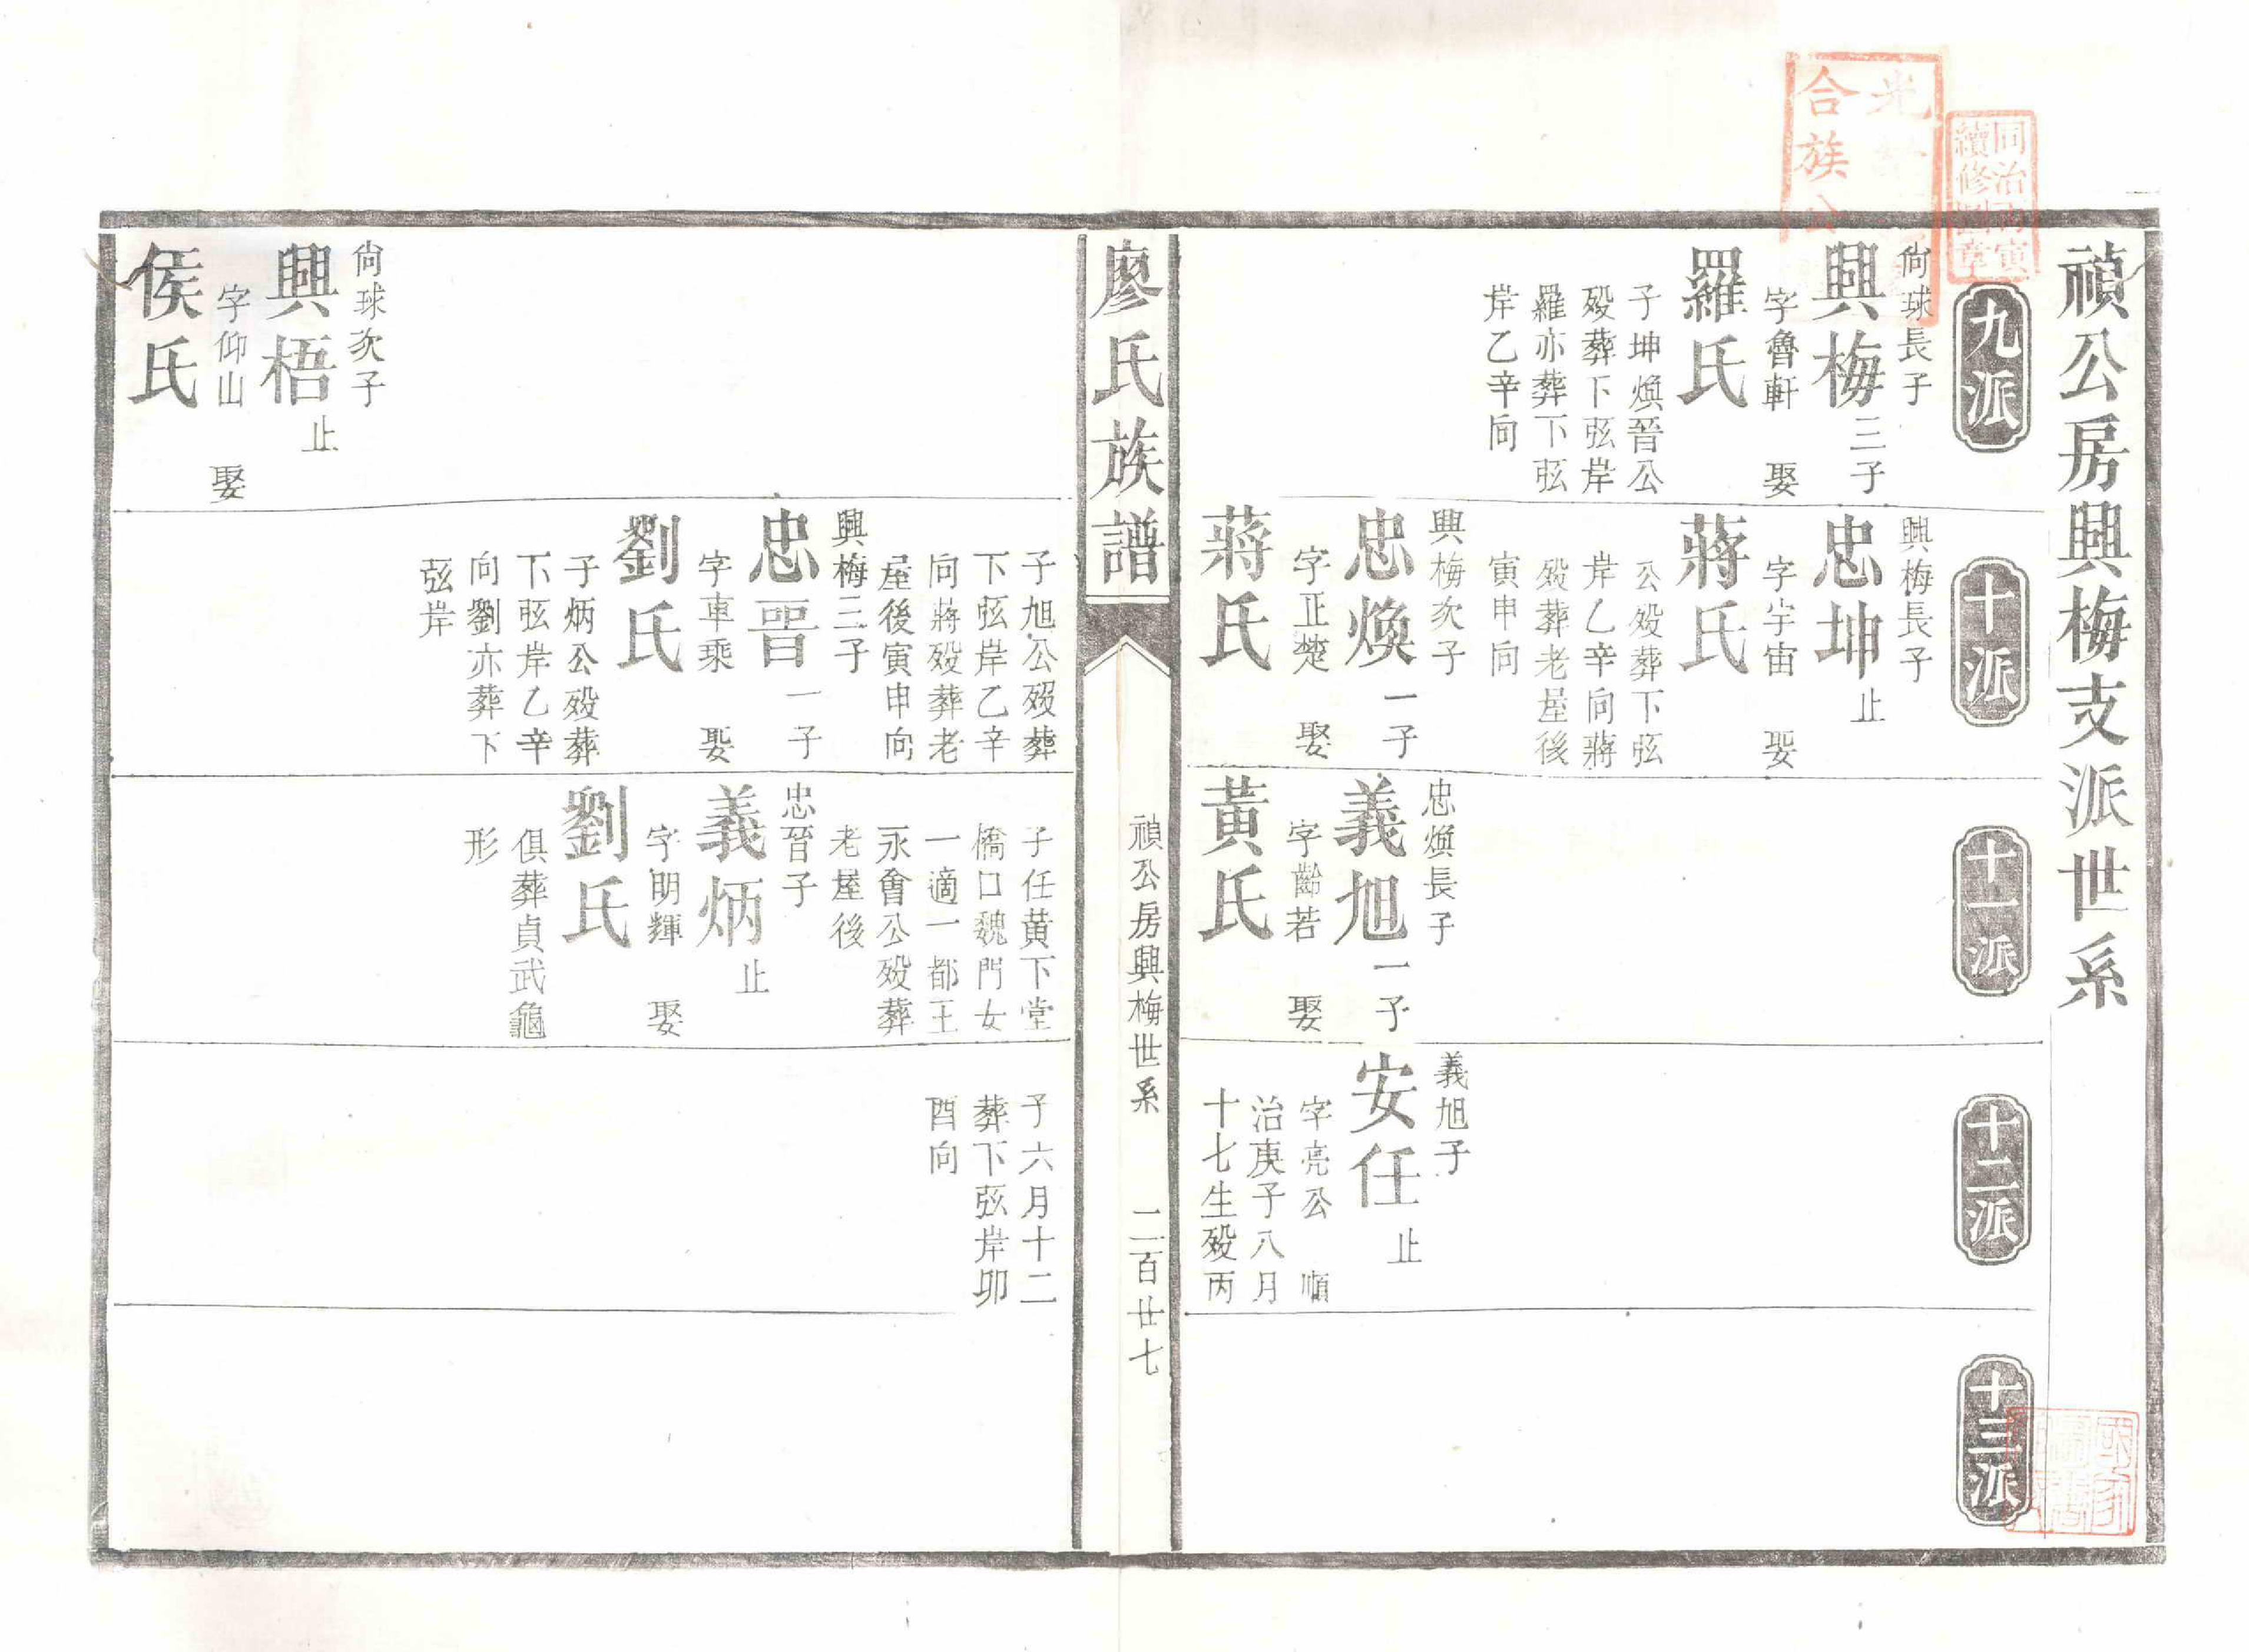 禎公房興梅支派世系
九派
尙球長子
興梅三子
字魯軒 娶
羅氏
子坤煥晉公
歿葬下弦岸
羅亦葬下弦
岸乙辛向
十派
興梅長子
忠坤止
字宇宙 娶
蔣氏
公歿葬下弦
岸乙辛向蔣
歿葬老屋後
寅申向
興梅次子
忠煥一子
字正楚 娶
蔣氏
十一派
忠煥長子
義旭一子
字齡若 娶
黃氏
十二派
義旭子
安任止
字亮公 順
治庚子八月
十七生歿丙
十三派
廖氏族譜
禎公房興梅世系 二百廿七
尙球次子
興梧止
字仰山 娶
侯氏
子旭公歿葬
下弦岸乙辛
向蔣歿葬老
屋後寅申向
興梅三子
忠晉一子
字車乘 娶
劉氏
子炳公歿葬
下弦岸乙辛
向劉亦葬下
弦岸
子任黃下堂
橋口魏門女
一適一都王
永會公歿葬
老屋後
忠晉子
義炳止
字明輝 娶
劉氏
俱葬貞武龜
形
子六月十二
葬下弦岸卯
酉向
合族公
同治丙寅
續修圖章